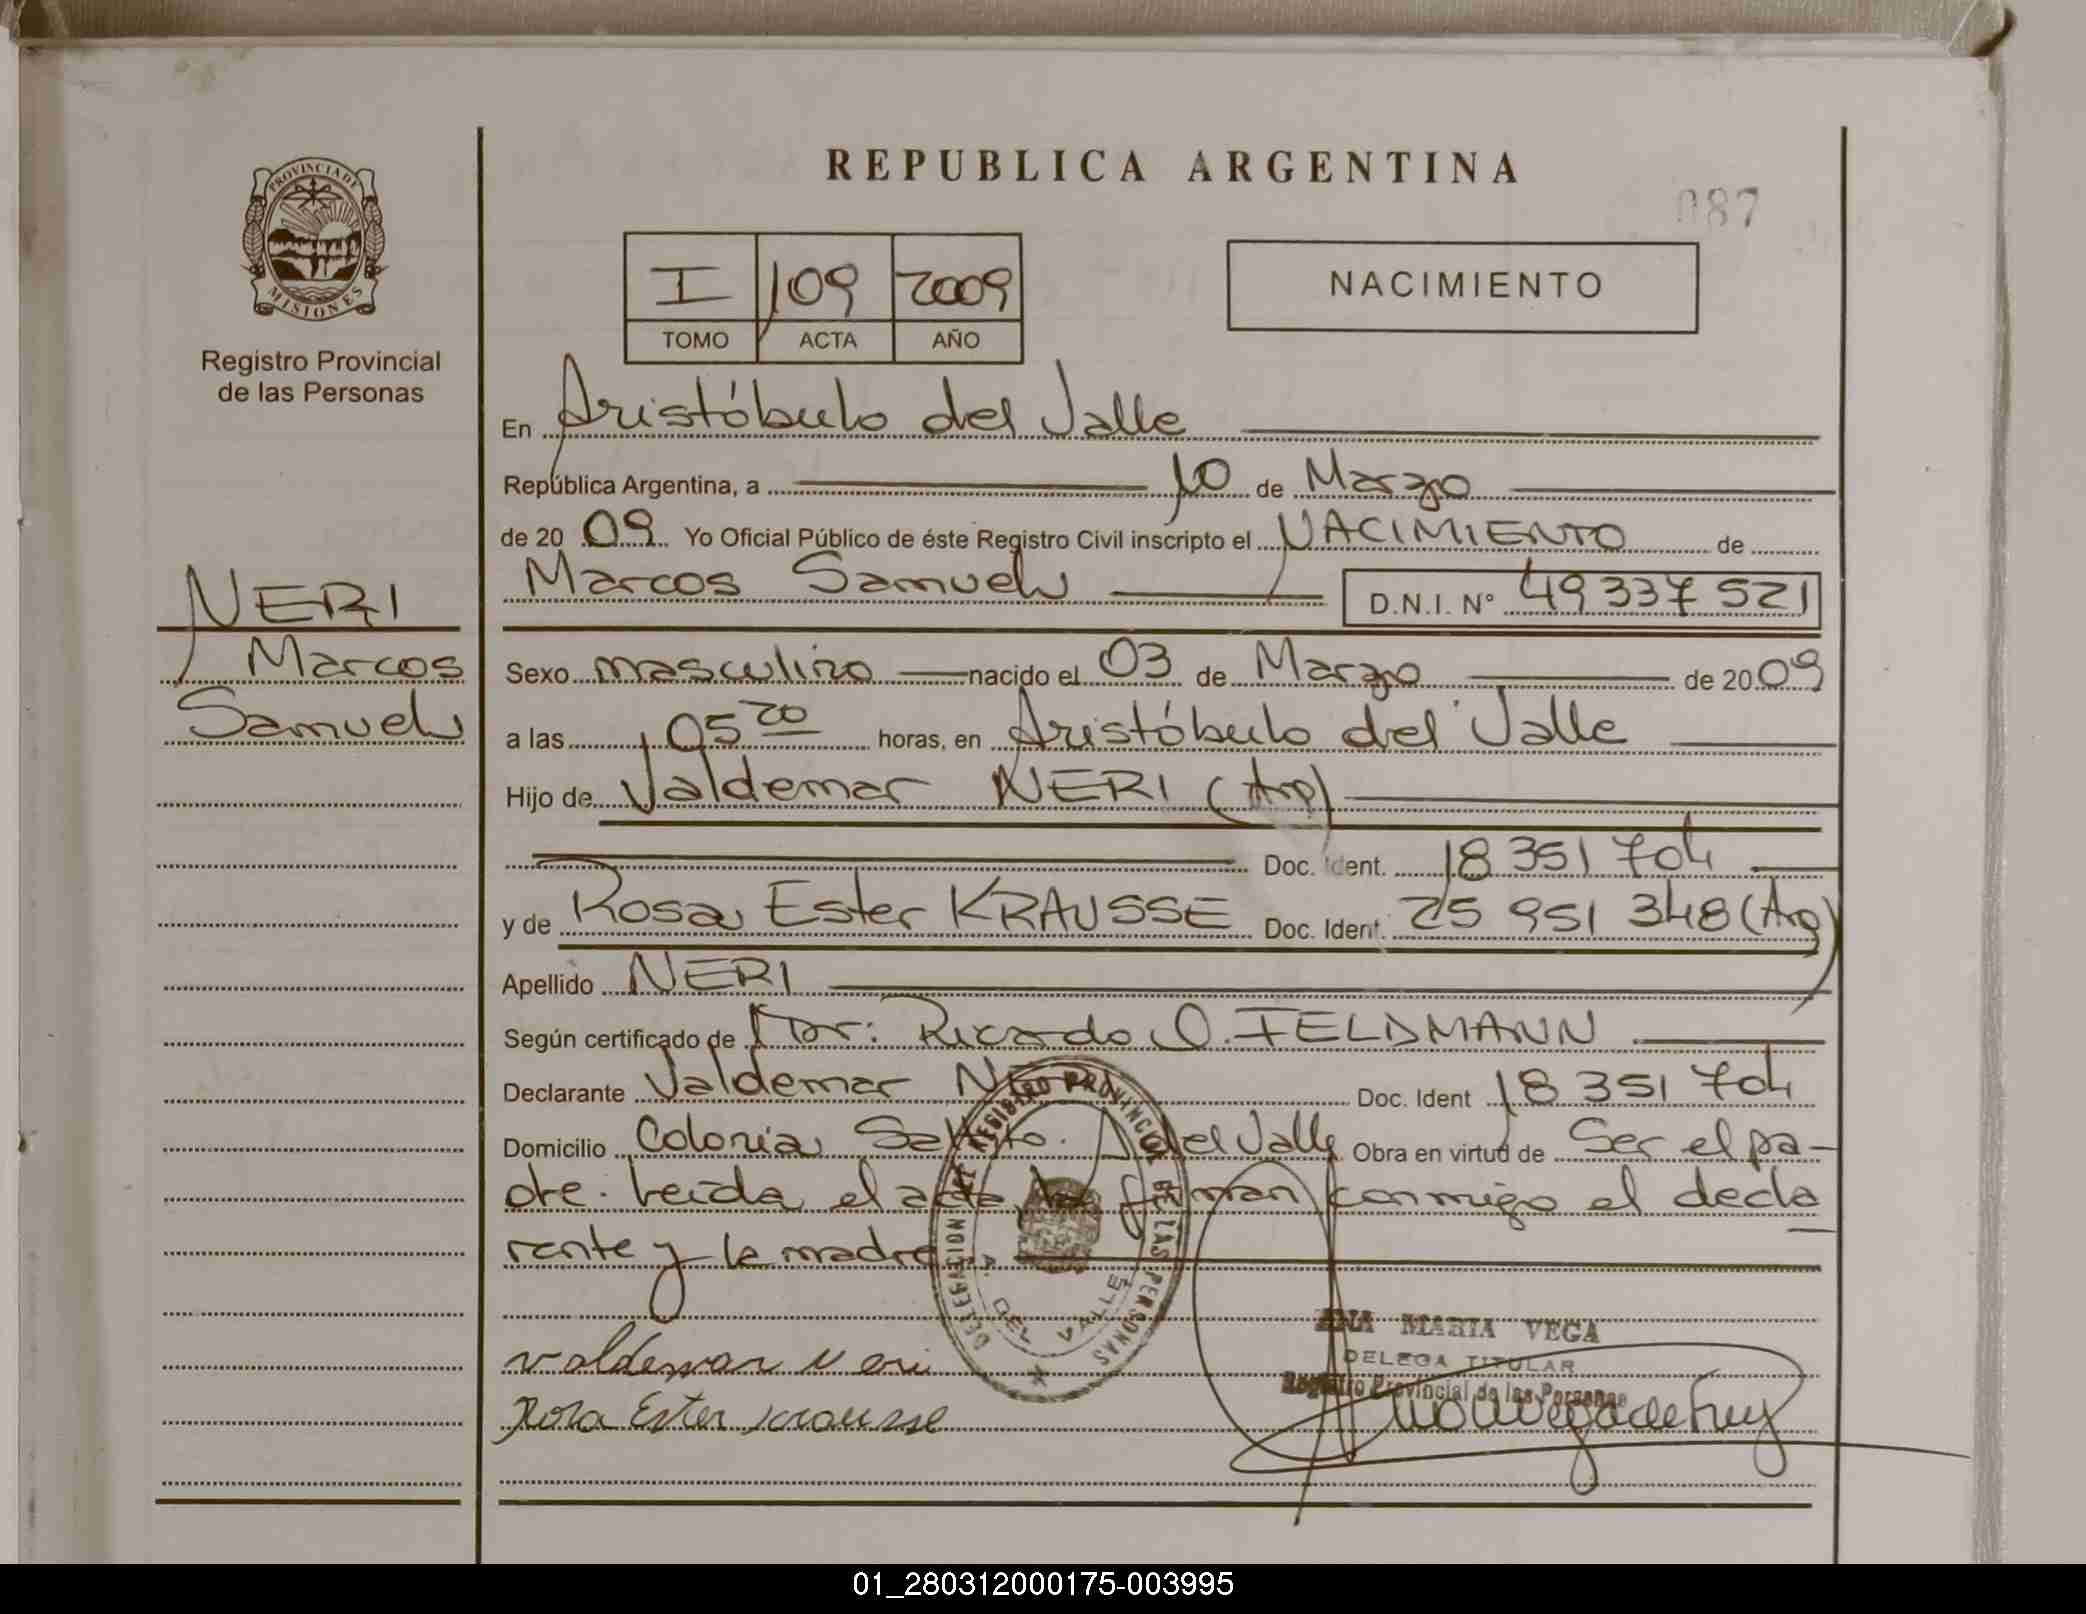 REPUBLICA ARGENTINA
087
PROVINCIA DE
MISIONES
Registro Provincial
de las Personas
I 109 2009
TOMO ACTA AÑO
NACIMIENTO
En Aristóbulo del Valle
República Argentina, a 10 de Marzo
de 20 09 Yo Oficial Público de éste Registro Civil inscripto el NACIMIENTO de
Marcos Samuel D.N.I. N° 49337521
NERI
Marcos
Samuel
Sexo masculino nacido el 03 de Marzo de 20 09
a las 05 20 horas, en Aristóbulo del Valle
Hijo de Valdemar NERI (Arg)
Doc. Ident. 18 351 704
y de Rosa Ester KRAUSSE Doc. Ident. 25 951 348 (Arg)
Apellido NERI
Según certificado de Dr: Ricardo O. FELDMANN
Declarante Valdemar Neri Doc. Ident 18 351 704
Domicilio Colonia A. del Valle Obra en virtud de Ser el pa-
dre. Leída el acta la firman conmigo el decla
rante y la madre
DELEGACION DEL REGISTRO PROVINCIAL DE LAS PERSONAS
A. DEL VALLE
Valdemar Neri
Rosa Ester Krausse
ANA MARIA VEGA
DELEGA TITULAR
Registro Provincial de las Personas
01_280312000175-003995